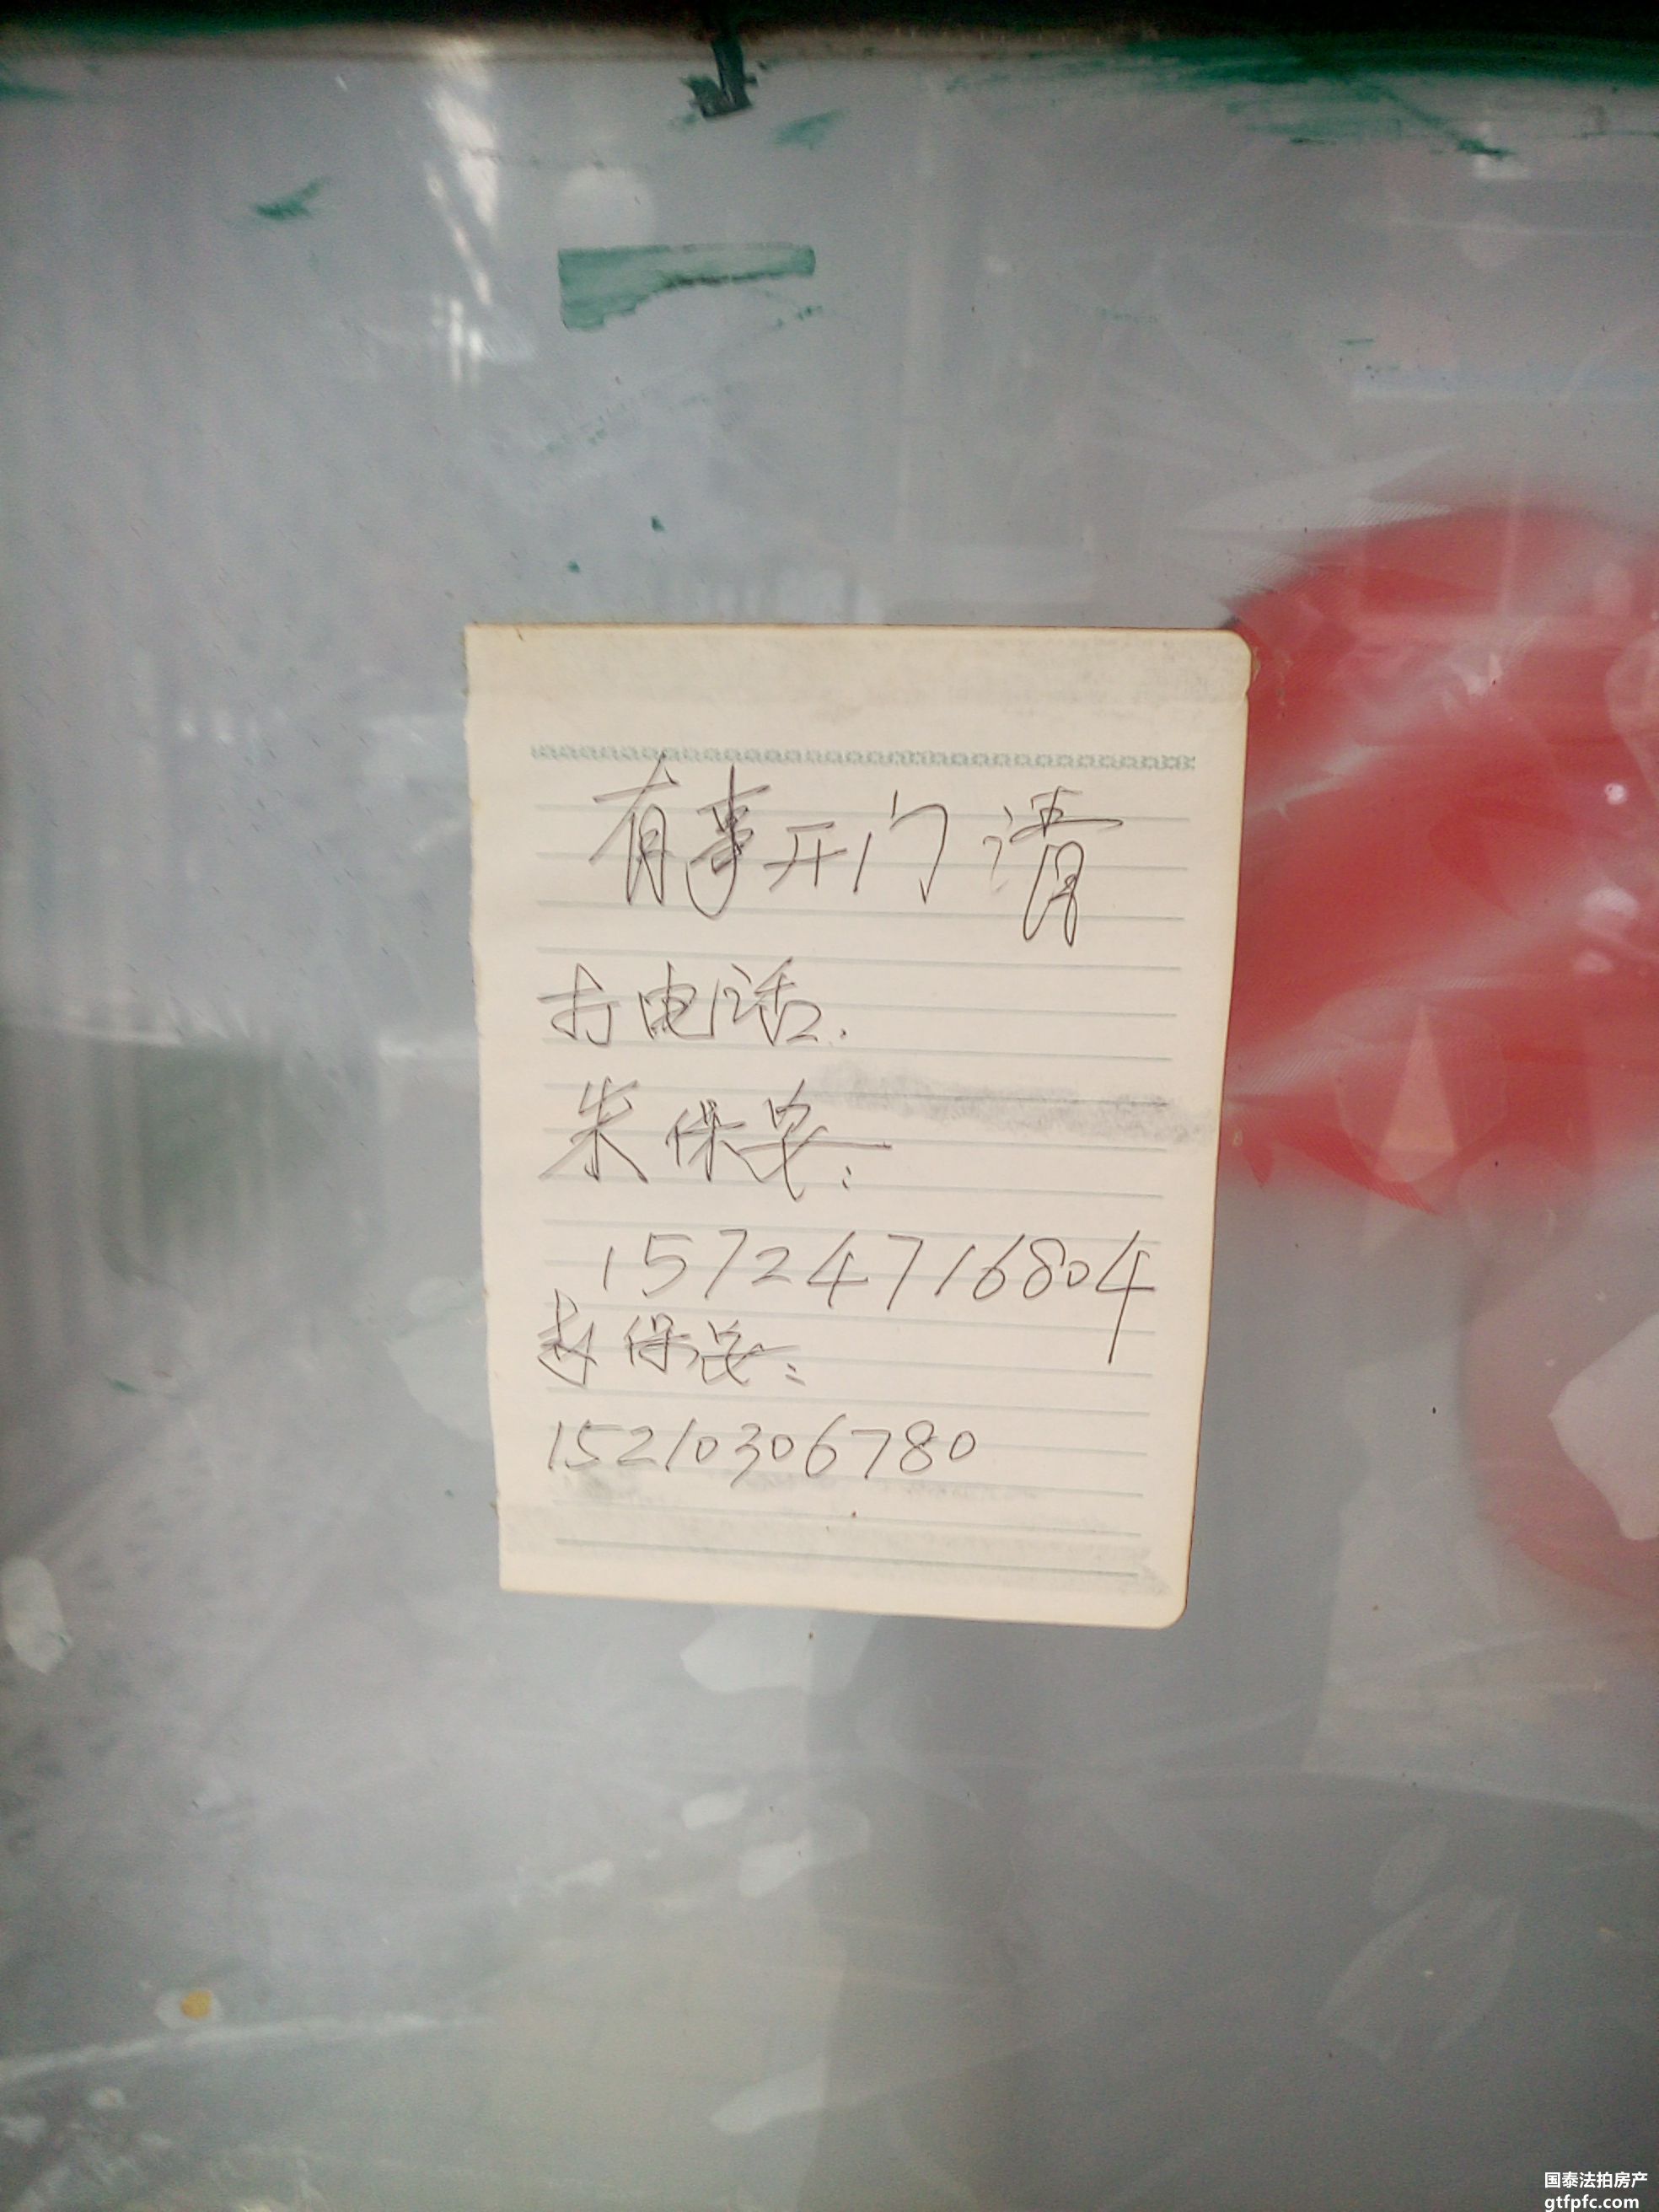 有事开门请
打电话.
朱保安:
15724716804
赵保安:
15210306780
国泰法拍房产
gtfpfc.com